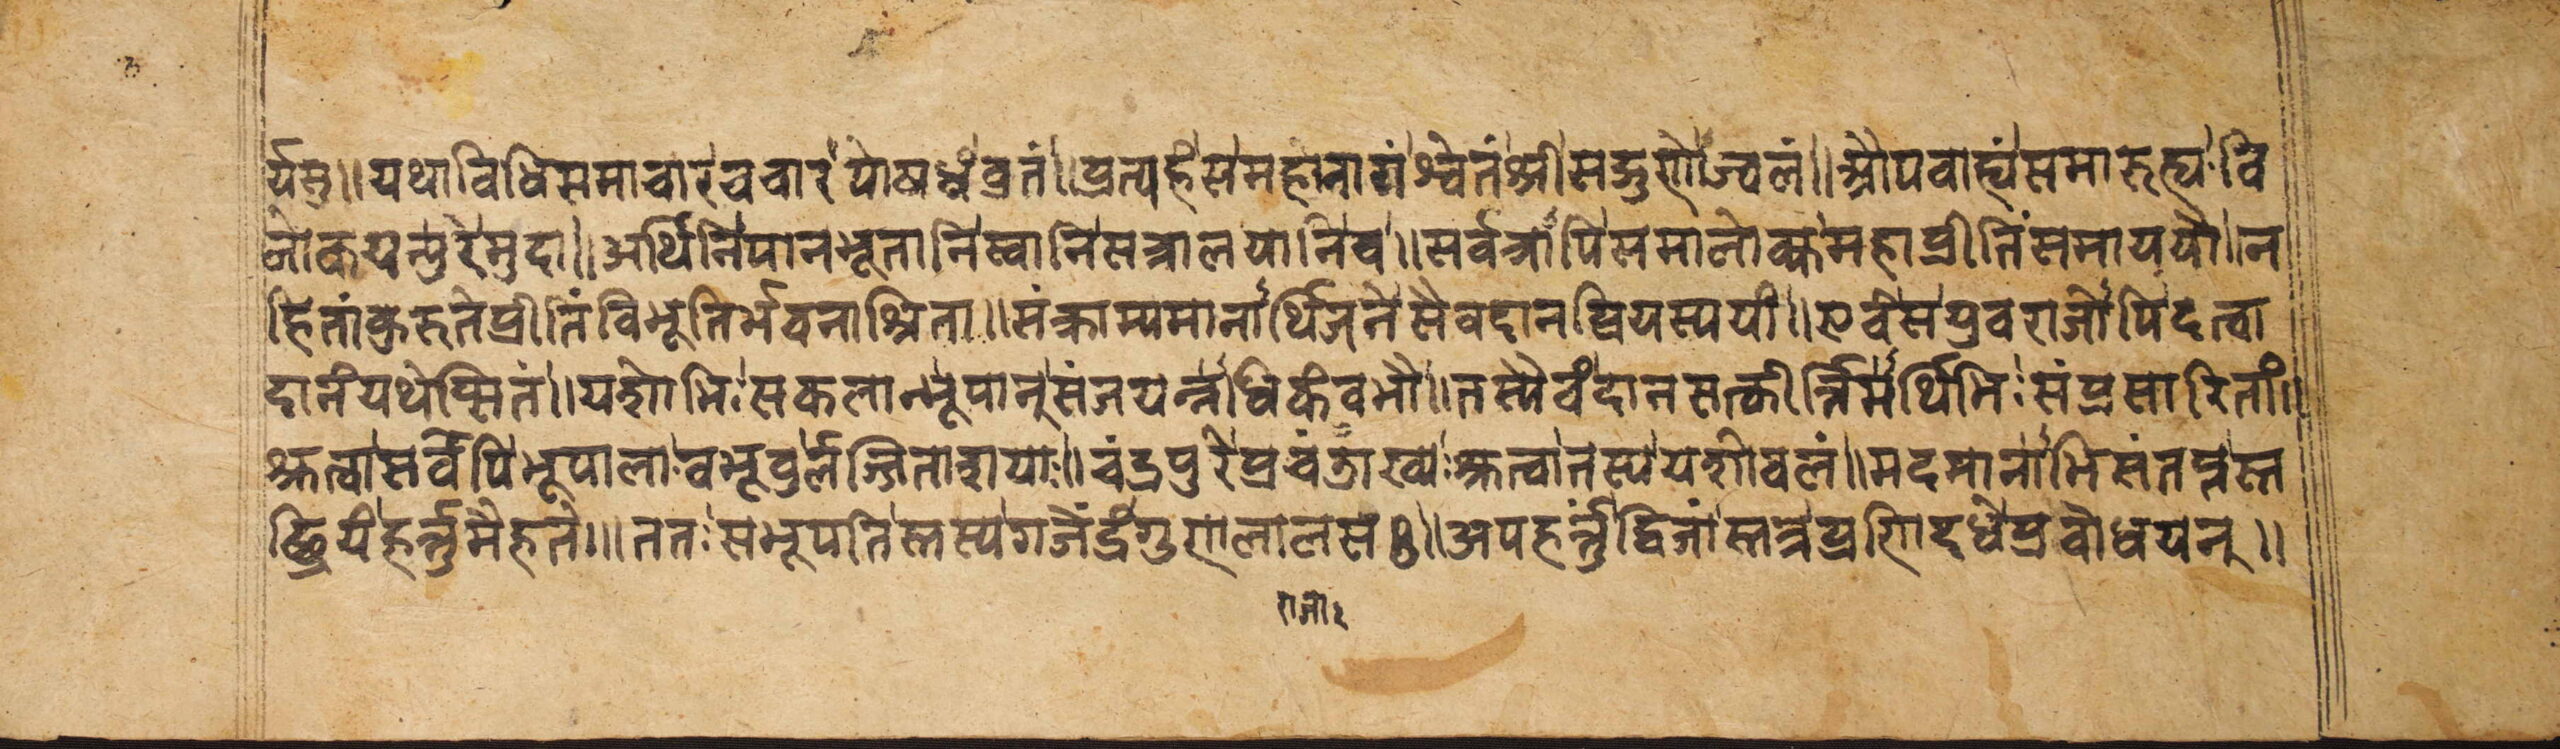 र्यसु॥यथाविधिसमाचारंचचारपोषधंव्रतं॥प्रत्यहंसमहानागंश्वेतंश्रीसद्गुणोज्वलं॥औपवाह्यंसमारूह्यवि
लोकयन्पुरेमुदा॥अर्थिनिपानभूतानिस्वानिसत्रालयानिच॥सर्वत्रापिसमालोक्यमहाप्रीतिंसमाययौ॥न
हितांकुरुतेप्रीतिंविभूतिर्भवनाश्रिता॥संक्राम्यमानार्थिजनेसैवदानप्रियस्ययां॥एवंसयुवराजोपिदत्वा
दानंयथेप्सितं॥यशोभिःसकलान्भूपान्संजयन्नधिकंवभौ॥तस्यैवंदानसत्कीर्त्तिमर्थिभिःसंप्रसारितां॥
श्रुत्वासर्वेपिभूपालावभूवुर्लज्जिताशयाः॥चंद्रपुरेप्रचंडाख्यःश्रुत्वातस्ययशोवलं॥मदमानाभिसंतप्तस्त
छ्रियंहर्त्तुमैहत॥ततःसभूपतिस्तस्यगजेंद्रगुणलालसः॥अपहर्त्तुंद्विजांस्तत्रप्रणिदधेप्रवोधयन्॥
राजो२